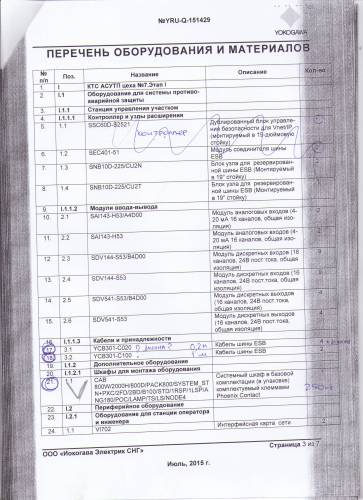 №YRU-Q-151429
YOKOGAWA
ПЕРЕЧЕНЬ ОБОРУДОВАНИЯ И МАТЕРИАЛОВ
№ п/п Поз. Название Описание Кол-во
1. I КТС АСУТП цеха №7.Этап I
2. I.1 Оборудование для системы противо-
аварийной защиты
3. I.1.1 Станция управления участком
4. I.1.1.1 Контроллер и узлы расширения
5. 1.1 SSC60D-S2521 Дублированный блок управле-
ния безопасности для Vnet/IP
(монтируемый в 19-дюймовую
стойку)
контроллер
6. 1.2 SEC401-51 Модуль соединителя шины
ESB
7. 1.3 SNB10D-225/CU2N Блок узла для резервирован-
ной шины ESB (Монтируемый
в 19" стойку)
8. 1.4 SNB10D-225/CU2T Блок узла для резервирован-
ной шины ESB (Монтируемый
в 19" стойку)
9. I.1.1.2 Модули ввода-вывода
10. 2.1 SAI143-H53/A4D00 Модуль аналоговых входов (4-
20 мА 16 каналов, общая изо-
ляция)
11. 2.2 SAI143-H53 Модуль аналоговых входов (4-
20 мА 16 каналов, общая изо-
ляция)
12. 2.3 SDV144-S53/B4D00 Модуль дискретных входов (16
каналов, 24В пост.тока, общая
изоляция)
13. 2.4 SDV144-S53 Модуль дискретных входов (16
каналов, 24В пост.тока, общая
изоляция)
14. 2.5 SDV541-S53/B4D00 Модуль дискретных выходов
(16 каналов, 24В пост.тока,
общая изоляция)
15. 2.6 SDV541-S53 Модуль дискретных выходов
(16 каналов, 24В пост.тока,
общая изоляция)
16. I.1.1.3 Кабели и принадлежности
17. 3.1 YCB301-C020 0,2м Кабель шины ESB
18. 3.2 YCB301-C100 1м Кабель шины ESB
19. I.1.2 Дополнительное оборудование
20. I.1.2.1 Шкафы для монтажа оборудования
21. CAB
800W/2000H/600D/PACK800/SYSTEM_ST
N+PXC/2FD/2BD/B100/STD/1RSP/1LSP/A
NG180/POC/LAMP/TS/LS/NODE4
Системный шкаф в базовой
комплектации (в упаковке)
комплектуемый клеммами
Phoenix Contact
22. I.2 Периферийное оборудование
23. I.2.1 Оборудование для станции оператора
и инженера
24. 1.1 VI702 Интерфейсная карта сети
Страница 3 из 7
ООО «Иокогава Электрик СНГ»
Июль, 2015 г.